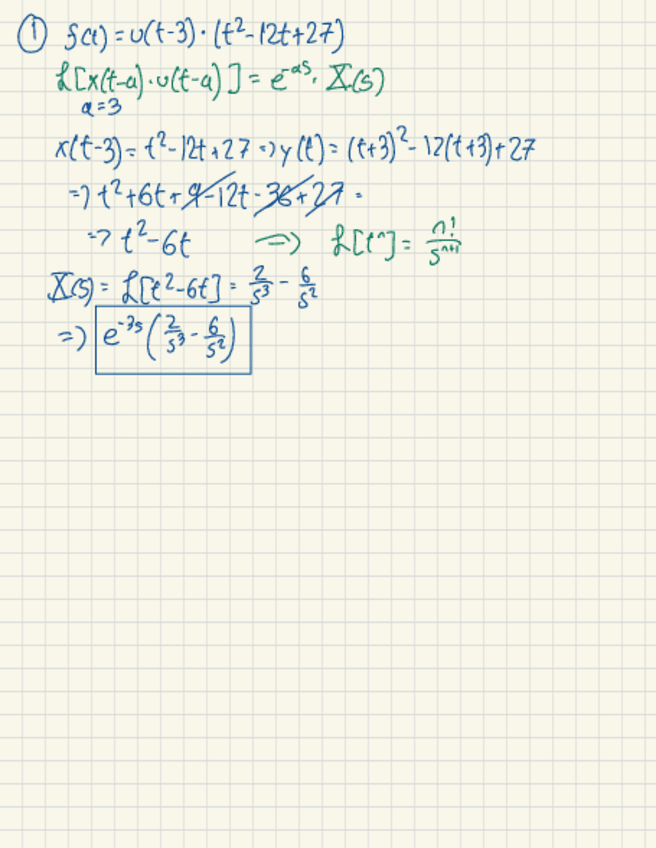 ① f(t) = u(t-3) · (t²-12t+27)
L[x(t-a)·u(t-a)] = e^-as · X(s)
a=3
x(t-3) = t²-12t+27 => y(t) = (t+3)²-12(t+3)+27
=> t²+6t+9-12t-36+27 =
=> t²-6t => L[t^n] = n!/s^n+1
X(s) = L[t²-6t] = 2/s³ - 6/s²
=> e^-3s (2/s³ - 6/s²)